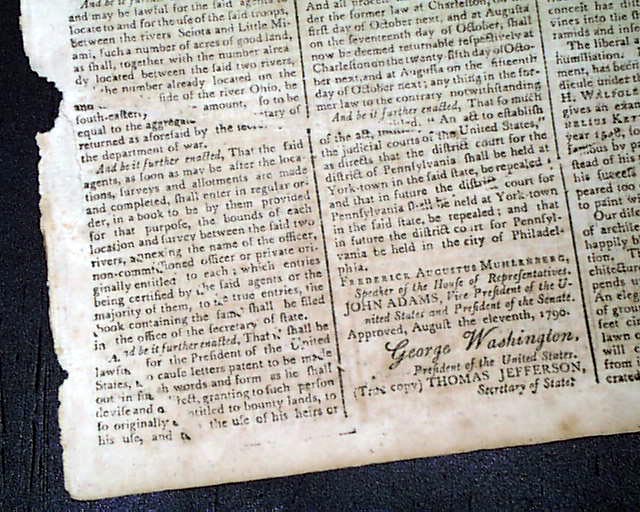 And be it further
and may be lawful for the said agents
locate to and for the use of the said troops,
between the rivers Sciota and Little Mi-
ami, such a number of acres of good land,
as shall, together with the number alrea-
dy located between the said two rivers,
the number already located on the
side of the river Ohio, be
south-eastern amount, so to be
equal to the aggregate
returned as aforesaid by the secretary of
the department of war.
And be it further enacted, That the said
agents, as soon as may be after the loca-
tions, surveys and allotments are made
and completed, shall enter in regular or-
der, in a book to be by them provided
for that purpose, the bounds of each
location and survey between the said two
rivers, annexing the name of the officer,
non-commissioned officer or private ori-
ginally entitled to each; which entries
being certified by the said agents or the
majority of them, to be true entries, the
book containing the same shall be filed
in the office of the secretary of state.
And be it further enacted, That it shall be
lawful for the President of the United
States, to cause letters patent to be made
out in such words and form as he shall
devise and granting to such person
so originally entitled to bounty lands, to
his use, and to the use of his heirs or
And all
der the former law at Charleston, on
first day of October next, and at Augusta
on the seventeenth day of October, shall
now be deemed returnable respectively at
Charleston on the twenty-fifth day of Octo-
ber next, and at Augusta on the fifteenth
day of October next; any thing in the for-
mer law to the contrary notwithstanding
And be it further enacted, That so much
of the act, "An act to establish
the judicial courts of the United States,"
as directs that the district court for the
district of Pennsylvania shall be held at
York-town in the said state, be repealed;
and that in future the district court for
Pennsylvania shall be held at York-town
in the said state, be repealed; and that
in future the district court for Pennsyl-
vania be held in the city of Philadel-
phia.
FREDERICK AUGUSTUS MUHLENBERG,
Speaker of the House of Representatives.
JOHN ADAMS, Vice President of the U-
nited States and President of the Senate.
Approved, August the eleventh, 1790.
George Washington,
President of the United States.
(True copy) THOMAS JEFFERSON,
Secretary of State.
conceit has
vines into the
ramids and
The liberal
humiliation,
ment, has been
dicule under
H. WALPOLE
gives an exam
year
famous by
stead of his
his success
peared too
to paint
Our
of architec
happily
tion. The
chitectu
pends
An eleg
of grou
feet
lawn
will
from
crated